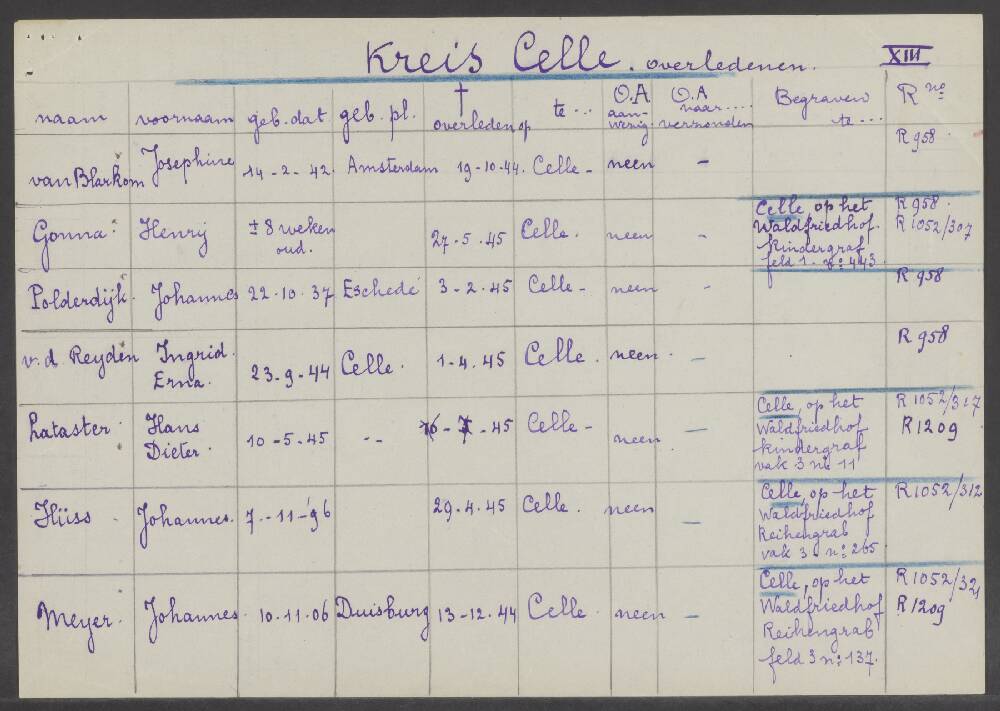 Kreis Celle. overledenen. XIII
naam voornaam geb. dat geb. pl. † overleden op te... O.A aanwezig O.A naar.... verzonden Begraven te... R no
van Blarkom Josephine 14-2-42. Amsterdam 19-10-44. Celle - neen - R 958
Gonna Henry ± 8 weken oud. 27-5-45 Celle. neen - Celle, op het R 958.
Waldfriedhof. R 1052/307
Kindergraf
feld 1 - no: 443.
Polderdijk. Johannes 22-10-37 Eschede 3-2-45 Celle - neen - R 958
v.d. Reyden Ingrid. Erna. 23-9-44 Celle. 1-4-45 Celle. neen - R 958
Lataster Hans Dieter. 10-5-45 -- -45 Celle - neen - Celle, op het R 1052/317
Waldfriedhof R 1209
kindergraf
vak 3 no 11
Hüss Johannes. 7-11-96 29-4-45 Celle. neen - Celle, op het R 1052/312
Waldfriedhof
Reihengrab
vak 3 - no: 265
Meyer. Johannes. 10-11-06 Duisburg 13-12-44 Celle. neen - Celle, op het R 1052/321
Waldfriedhof R 1209
Reihengrab
feld 3 no: 137.